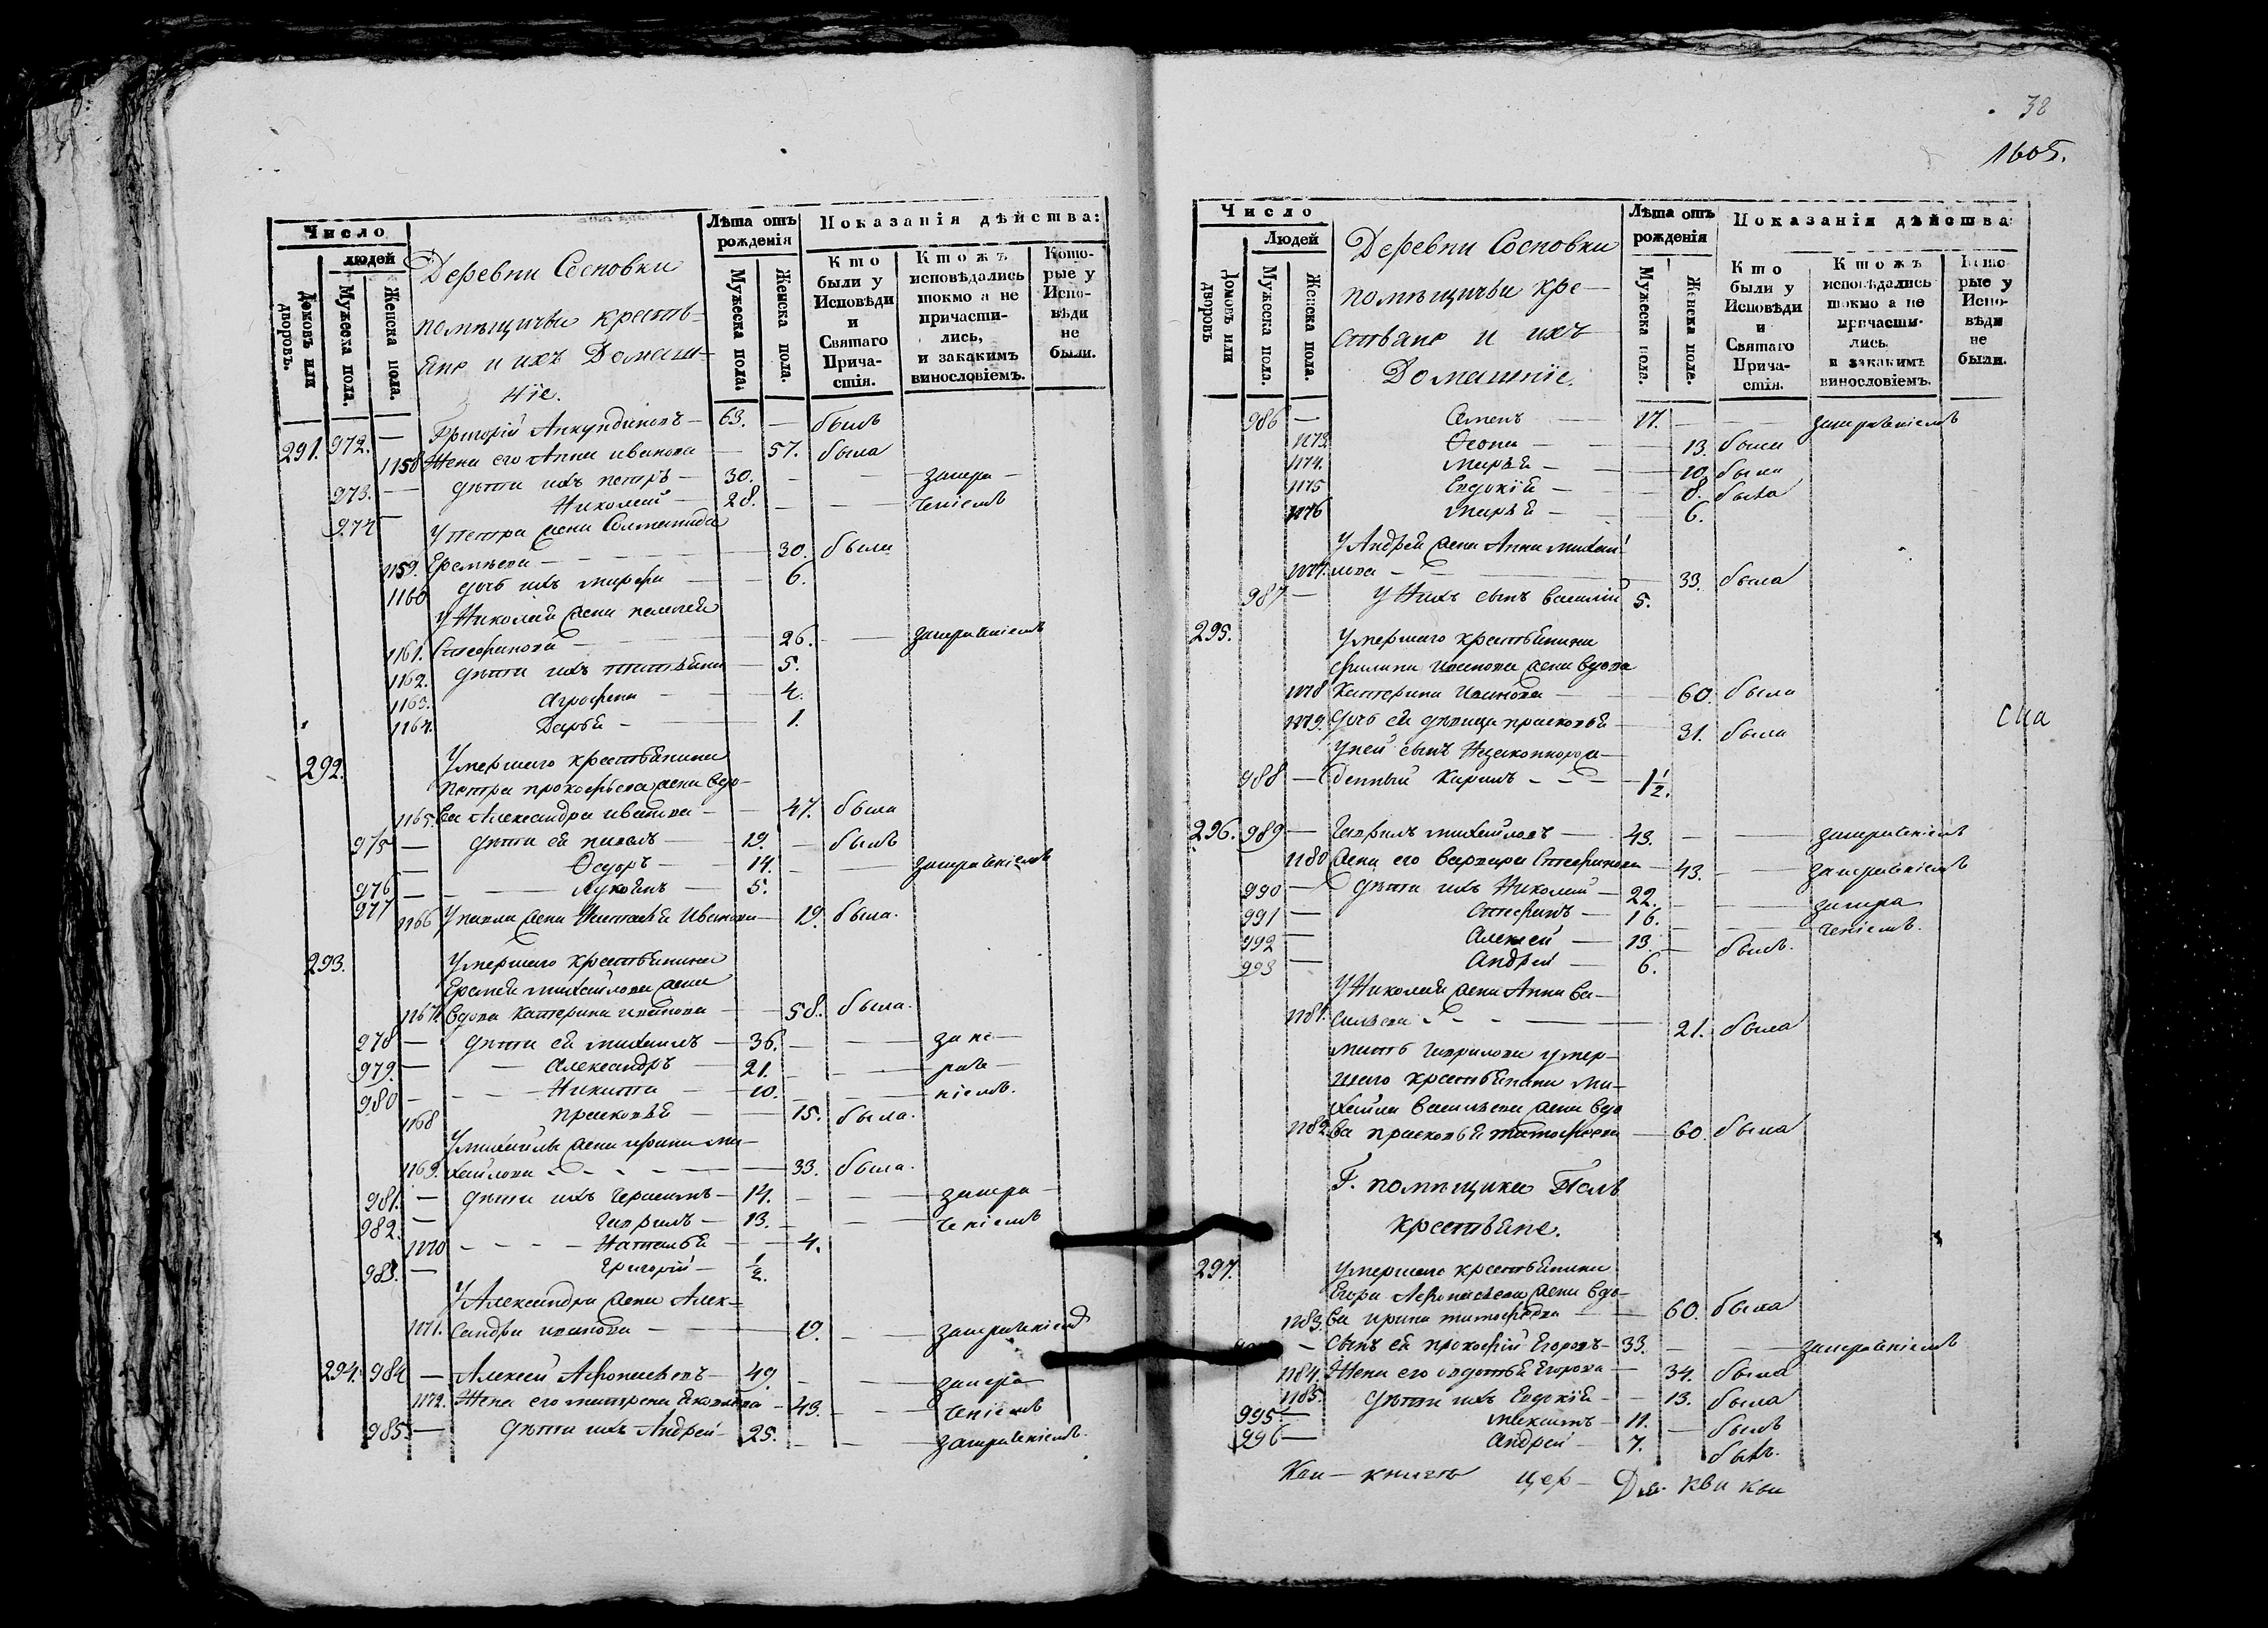 Число
людей
Домовъ или дворовъ.
Мужеска пола.
Женска пола.
Деревни Сосновки
помѣщичьи крестьѣ-
яне и ихъ Домаш-
нiе.
Лѣта отъ рожденiя
Мужеска пола.
Женска пола.
Показанiя дѣйства:
Кто были у Исповѣди и Святаго Прича-стiя.
Ктожъ исповѣдались токмо а не причасти-лись, и закакимъ винословiемъ.
Кото-рые у Испо-вѣди не были.
291. 972. — Григорiй Анкундиновъ — 63. — былъ
1158 Жена его Анна иванова — 57. была
973. — дѣти ихъ петръ — 30. — — заира-
974 — Николай — 28. — — ченiемъ
У петра жена Соломанида
1159. Еремѣева — 30. была
1160 дочь ихъ марфа — 6.
У Николая жена пелагея
1161. Стефанова — 26. — заираченiемъ
1162. дѣти ихъ татьяна — 5.
1163. Агрофена — 4.
1164. Дарья — 1.
292. Умершаго крестьянина
Петра прокофьева жена вдо-
1165. ва Александра иванова — 47. была
975 — дѣти ея павелъ — 19. — былъ
976 — Ѳедоръ — 14. — заираченiемъ
977 — Лукоянъ — 5.
1166 У павла жена Наталья Иванова — 19. была.
293. Умершаго крестьянина
Еремея михайлова жена
1167. вдова Катерина иванова — 58. была.
978 — дѣти ея михаилъ — 36. — — за не-
979. — Александръ — 21. — —
980 — Никита — 10. — — нiемъ.
1168 прасковья — 15. была.
У михаилы жена ирина ми-
1169. хайлова — 33. была.
981. — дѣти ихъ Герасимъ — 14. — — заира-
982. — Гаврилъ — 13. — — ченiемъ
1170 — Наталья — 4.
983. — Григорiй — 1/2.
У Александра жена Алек-
1171. сандра иванова — 19. — заираченiемъ
294. 984 — Алексей Афонасьевъ — 49. — — заира
1172. Жена его матрена Яковлева — 43. — ченiемъ
985. — дѣти ихъ Андрей — 25. — — заираченiемъ.
38
1605.
Число
Людей
Домовъ или дворовъ
Мужеска пола.
Женска пола.
Деревни Сосновки
помѣщичьи кре-
стьяне и ихъ
Домашнiе.
Лѣта отъ рожденiя
Мужеска пола.
Женска пола.
Показанiя дѣйства
Кто были у Исповѣди и Святаго Прича-стiя.
Ктожъ исповѣдались токмо а не причасти-лись. и закакимъ винословiемъ.
Кото-рые у Испо-вѣди не были.
986 — Семенъ — 17. — — заираченiемъ
1173. — 13. была
1174. марья — 10. была
1175 Евдокiя — 8. была
1176 марья — 6.
У Андрея жена Анна михай-
1177. лова — 33. была
987 — У Нихъ сынъ василiй 5.
295. Умершаго крестьянина
филипа иванова жена вдова
1178 Катерина Иванова — 60. была
1179. Дочь ея дѣвица прасковья — 31. была
У ней сынъ Незаконнорож-
988 — денный Кирилъ — 1 1/2.
296. 989 — Гаврилъ михайловъ — 43. — — заираченiемъ
1180 Жена его варвара Стефанова — 43. — заираченiемъ
990 — дѣти ихъ Николай — 22. — — заира
991 — Стефанъ — 16. — — ченiемъ.
992 — Алексей — 13. — былъ.
993 — Андрей — 6.
У Николая жена Анна ва-
1181. сильева — 21. была
мать гаврилова умер-
шаго крестьянина ми-
хайла васильева жена вдо
1182 ва прасковья тимофеева — 60. была
Г. помѣщика
крестьяне.
297. Умершаго крестьянина
Егора Афонасьева жена вдо-
1183. ва ирина тимофеева — 60. была
— Сынъ ея прокофiй Егоровъ — 33. — — заираченiемъ
1184. Жена его авдотья Егорова — 34. была
1185. дѣти ихъ Евдокiя — 13. была
995 — максимъ — 11. — былъ
996 — Андрей — 7. былъ.